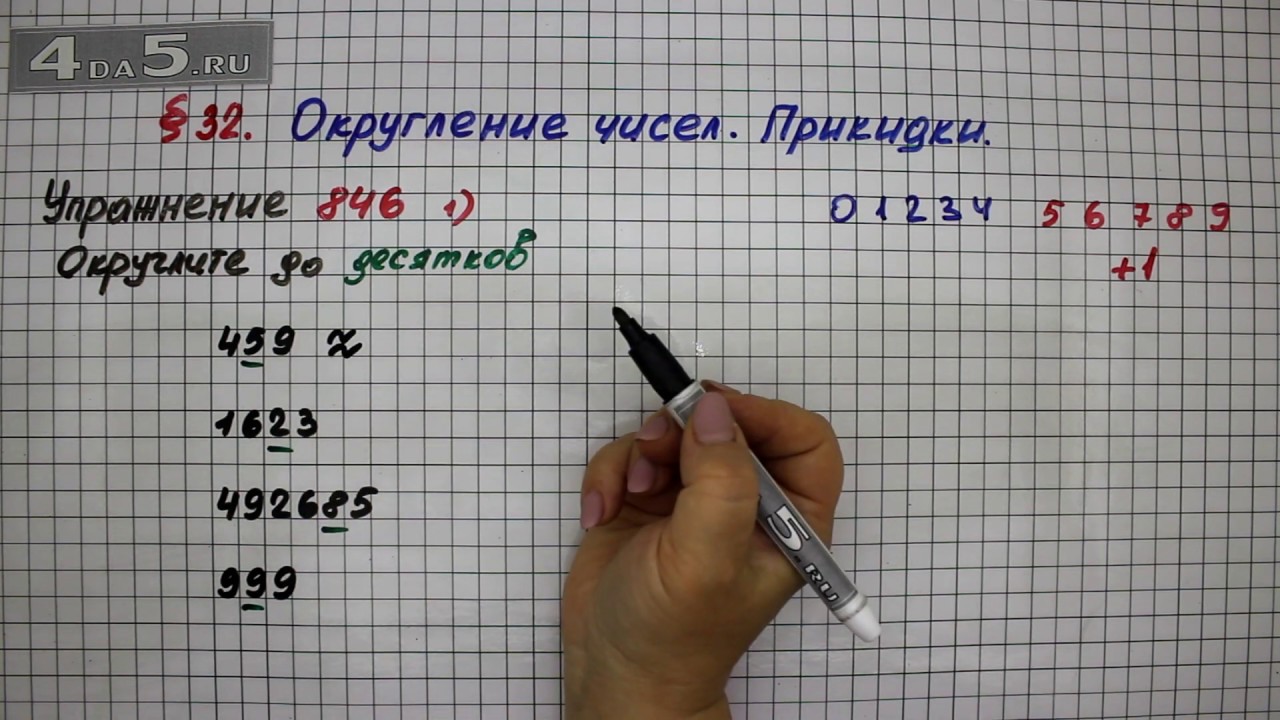 4DA5.RU
§ 32. Округление чисел. Прикидки.
Упражнение 846 1)
0 1 2 3 4 5 6 7 8 9
+1
Округлите до десятков
459 ≈
1623
492685
999
5.RU